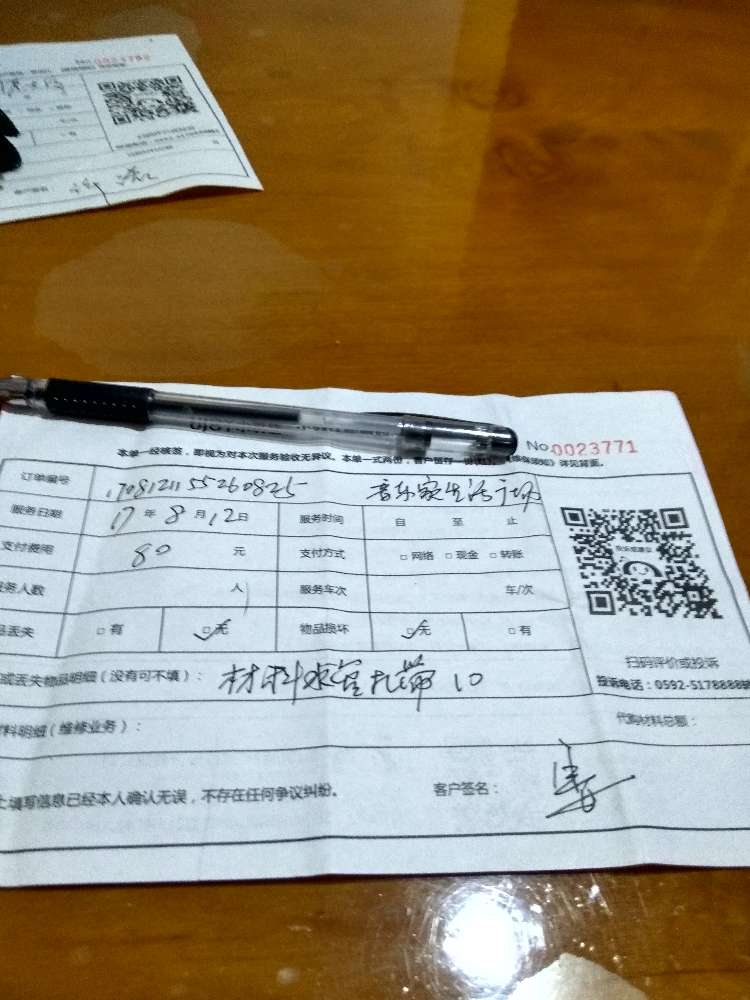 0023792
No.0023771
本单一经核签，即视为对本次服务验收无异议。本单一式两份，客户留存一份 详见背面。
订单编号 1708121155260825 音乐家生活广场
服务日期 17 年 8 月 12 日 服务时间 自 至 止
支付费用 80 元 支付方式 □网络 □现金 □转账
务人数 人 服务车次 车/次
品丢失 □有 □无 物品损坏 □无 □有
或丢失物品明细（没有可不填）： 材料水管扎带 10
料明细（维修业务）： 代购材料总额：
上填写信息已经本人确认无误，不存在任何争议纠纷。 客户签名：
投诉或建议
扫码评价或投诉
投诉电话：0592-5178888